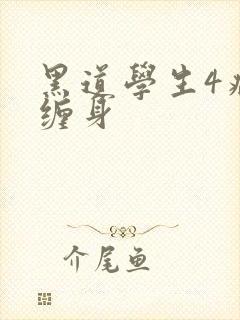 黑道學生4病
缠身
介尾鱼